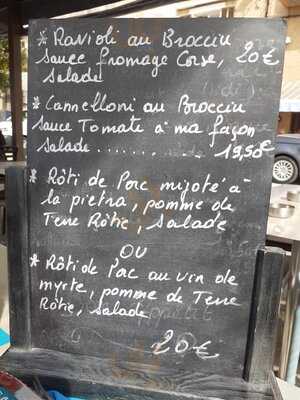 * Ravioli au Brocciu
sauce fromage Corse, 20€
Salade
* Cannelloni au Brocciu
sauce Tomate à ma façon
Salade.......... 19,50€
* Rôti de Porc mijoté à
la pietra, pomme de
Terre Rôtie, Salade
OU
* Rôti de Porc au vin de
myrte, pomme de Terre
Rôtie, Salade
20€